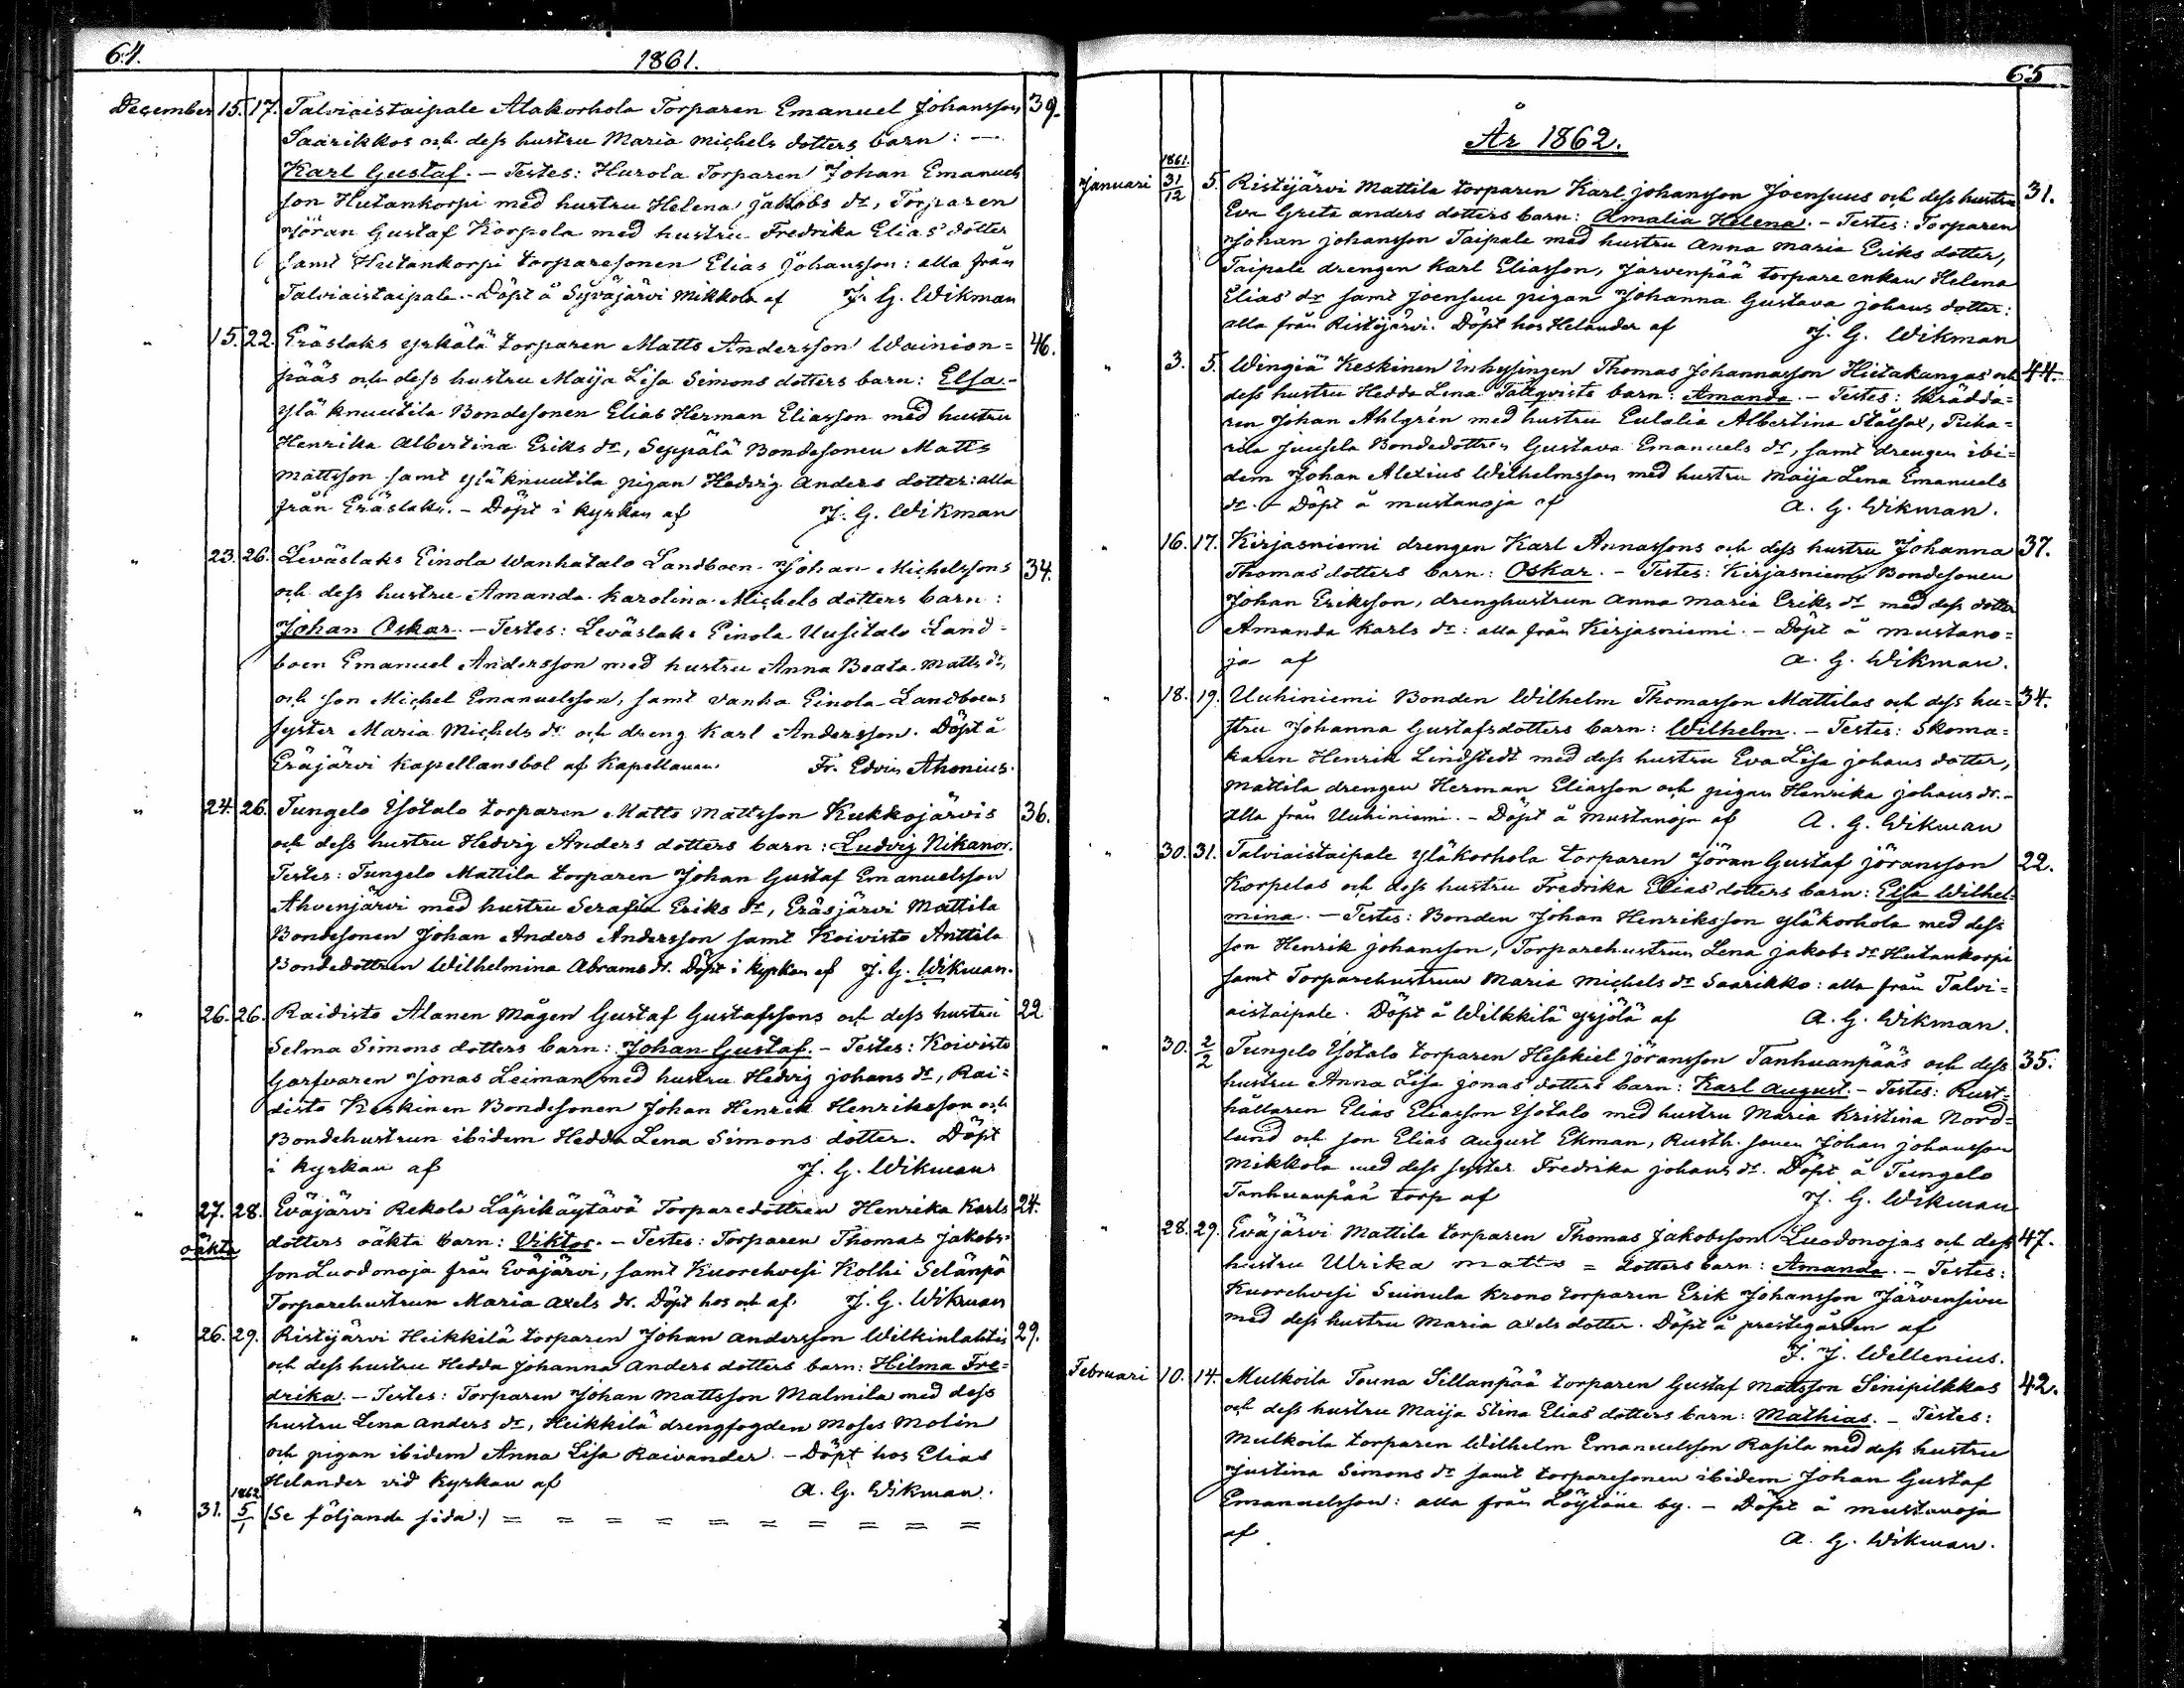 64.
1861.
December 15. 17. Talviaistaipale Alakorhola Torparen Emanuel Johansson 39.
Saarikkos och dess hustru Maria Michels dotters barn: —
Karl Gustaf. — Testes: Hurola Torparen Johan Emanuels
son Hutankorpi med hustru Helena Jakobs dr, Torparen
Jöran Gustaf Korpela med hustru Fredrika Elias dotter
samt Hutankorpi torparesonen Elias Johansson: alla från
Talviaistaipale. - Döpt å Syväjärvi Mikkola af J. G. Wikman
" 15. 22. Eräslaks Yrkälä torparen Matts Andersson Wainion= 46.
pääs och dess hustru Maija Lisa Simons dotters barn: Elsa. -
Ylä knuutila Bondesonen Elias Herman Eliasson med hustru
Henrika Albertina Eriks dr, Seppälä Bondesonen Matts
Mattsson samt yläknuutila pigan Hedvig Anders dotter: alla
från Eräslaks. - Döpt i kyrkan af J. G. Wikman
" 23. 26. Leväslaks Einola Wanhatalo Landboen Johan Michelssons 34.
och dess hustru Amanda Karolina Michels dotters barn:
Johan Oskar. - Testes: Leväslaks Einola Uusitalo Land-
boen Emanuel Andersson med hustru Anna Beata Matts dr,
och son Michel Emanuelsson, samt Vanha Einola Landboens
syster Maria Michels dr och dreng Karl Andersson. Döpt å
Eräjärvi kapellansbol af Kapellanen Fr. Edvin Ahonius.
" 24. 26. Tungelo Ysotalo torparen Matts Mattsson Kukkojärvis 36.
och dess hustru Hedvig Anders dotters barn: Ludvig Nikanor.
Testes: Tungelo Mattila torparen Johan Gustaf Emanuelsson
Ahvenjärvi med hustru Serafia Eriks dr, Eräsjärvi Mattila
Bondesonen Johan Anders Andersson samt Koivisto Anttila
Bondedottren Wilhelmina Abrams dr. Döpt i kyrkan af J. G. Wikman.
" 26. 26. Raidisto Alanen Mågen Gustaf Gustafssons och dess hustru 22
Selma Simons dotters barn: Johan Gustaf. - Testes: Koivisto
Garfvaren Jonas Leiman med hustru Hedvig Johans dr, Rai=
disto Keskinen Bondesonen Johan Henrik Henriksson och
Bondehustrun ibidem Hedda Lena Simons dotter. Döpt
i kyrkan af J. G. Wikman
" 27. 28. Eväjärvi Rekola Läpikäytävä Torparedottren Henrika Karls 24.
oäkta dotters oäkta barn: Viktor. - Testes: Torparen Thomas Jakobs-
son Luodonoja från Eväjärvi, samt Kuorehvesi Kolhi Selänpä
Torparehustrun Maria Axels dr. Döpt hos och af J. G. Wikman
" 26. 29. Ristijärvi Heikkilä torparen Johan Andersson Wilkinlahtis 29.
och dess hustru Hedda Johanna Anders dotters barn: Hilma Fre=
drika. - Testes: Torparen Johan Mattsson Malmila med dess
hustru Lena Anders dr, Heikkilä drengfogden Moses Molin
och pigan ibidem Anna Lisa Raivander. - Döpt hos Elias
Helander vid kyrkan af A. G. Wikman.
" 31. 1862 5/1 (Se följande sida.) = = = = = = = = = =
65
År 1862.
Januari 1861. 31/12 5. Ristijärvi Mattila torparen Karl Johansson Joensuus och dess hustru 31.
Eva Greta Anders dotters barn: Amalia Helena. - Testes: Torparen
Johan Johansson Taipale med hustru Anna Maria Eriks dotter,
Taipale drengen Karl Eliasson, Järvenpää torpare enkan Helena
Elias dr samt Joensuu pigan Johanna Gustava Johans dotter:
alla från Ristijärvi. Döpt hos Helander af J. G. Wikman
" 3. 5. Wingiä Keskinen Inhysingen Thomas Johannasson Hiitakangas och 44.
dess hustru Hedda Lena Tallqvists barn: Amanda. - Testes: Skrädda=
ren Johan Ahlgrén med hustru Eulalia Albertina Stålfot, Puha=
rila Juusela Bondedottren Gustava Emanuels dr, samt drengen ibi=
dem Johan Alexius Wilhelmsson med hustru Maija Lena Emanuels
dr. - Döpt å Mustanoja af A. G. Wikman.
" 16. 17. Kirjasniemi drengen Karl Annassons och dess hustru Johanna 37.
Thomas dotters barn: Oskar. - Testes: Kirjasniemi Bondesonen
Johan Eriksson, drenghustrun Anna Maria Eriks dr med dess dotter
Amanda Karls dr: alla från Kirjasniemi. - Döpt å Mustano=
ja af A. G. Wikman.
" 18. 19. Uuhiniemi Bonden Wilhelm Thomasson Mattilas och dess hu= 34.
stru Johanna Gustafsdotters barn: Wilhelm. - Testes: Skoma=
karen Henrik Lindstedt med dess hustru Eva Lisa Johans dotter,
Mattila drengen Herman Eliasson och pigan Henrika Johans dr. -
alla från Uuhiniemi. - Döpt å Mustanoja af A. G. Wikman
" 30. 31. Talviaistaipale Yläkorhola torparen Jöran Gustaf Jöransson 22.
Korpelas och dess hustru Fredrika Elias dotters barn: Elsa Wilhel-
mina. - Testes: Bonden Johan Henriksson Yläkorhola med dess
son Henrik Johansson, Torparehustrun Lena Jakobs dr Hutankorpi
samt Torparehustrun Maria Michels dr Saarikko: alla från Talvi=
aistaipale. Döpt å Wilkkilä Yrjölä af A. G. Wikman.
" 30. 2/2 Tungelo Ysotalo torparen Heskiel Jöransson Tanhuanpääs och dess 35.
hustru Anna Lisa Jonas dotters barn: Karl August. - Testes: Rust-
hållaren Elias Eliasson Ysotalo med hustru Maria Kristina Nord=
lund och son Elias August Ekman, Rusth. sonen Johan Johansson
Mikkola med dess syster Fredrika Johans dr. Döpt å Tungelo
Tanhuanpää torp af J. G. Wikman
" 28. 29. Eväjärvi Mattila torparen Thomas Jakobsson Luodonojas och dess 47.
hustru Ulrika Matts = dotters barn: Amanda. - Testes:
Kuorehvesi Suinula krono torparen Erik Johansson Järvensivu
med dess hustru Maria Axels dotter. Döpt å prestegården af
J. J. Wellenius.
Februari 10. 14. Mulkoila Touna Sillanpää torparen Gustaf Mattsson Sinipilkkas 42.
och dess hustru Maija Stina Elias dotters barn: Mathias. - Testes:
Mulkoila torparen Wilhelm Emanuelsson Rasila med dess hustru
Justina Simons dr samt torparesonen ibidem Johan Gustaf
Emanuelsson: alla från Löytäne by. - Döpt å Mustanoja
af A. G. Wikman.